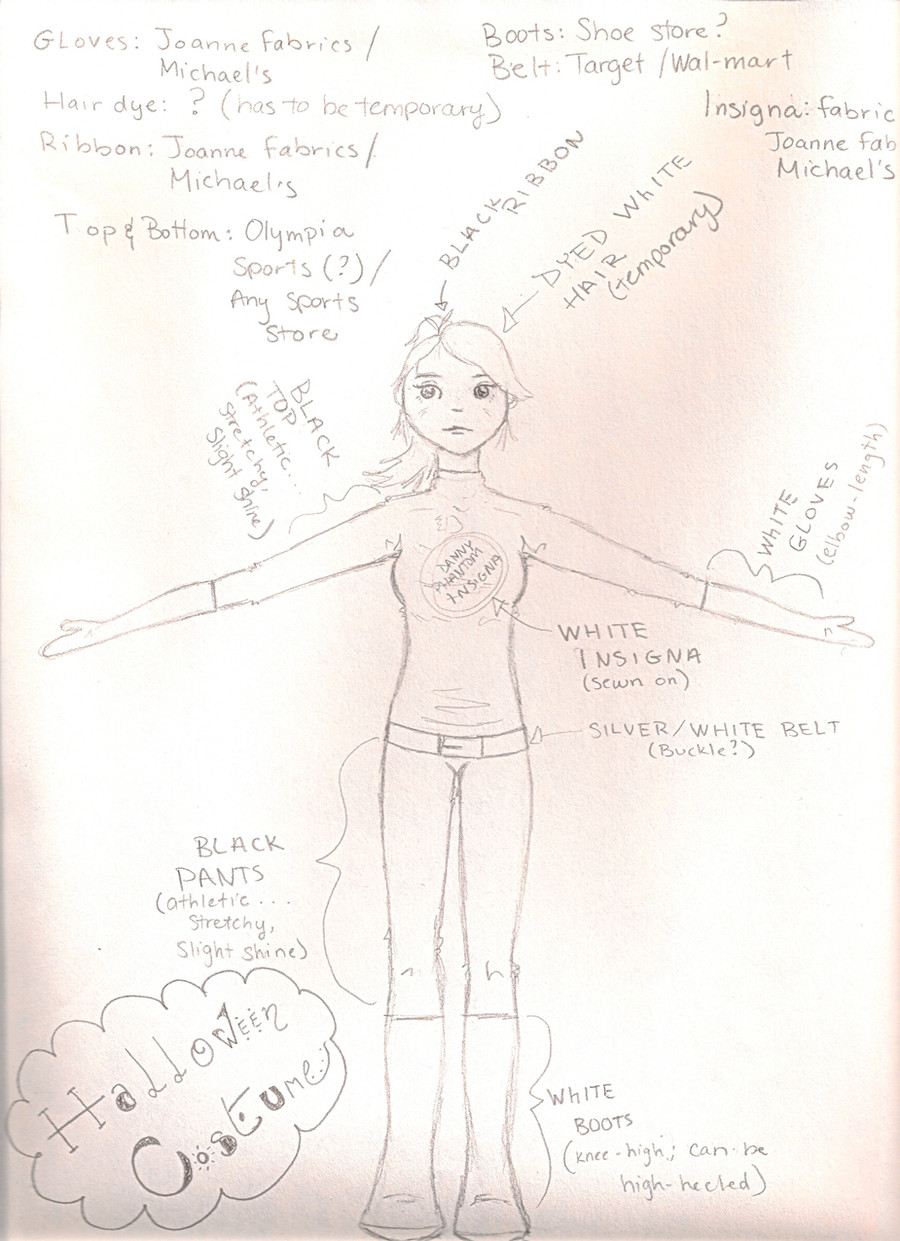 Gloves: Joanne Fabrics /
Michael's
Boots: Shoe store?
Belt: Target / Wal-mart
Hair dye: ? (has to be temporary)
Insigna: fabric
Joanne Fab
Michael's
Ribbon: Joanne Fabrics /
Michael's
Top & Bottom: Olympia
Sports (?) /
Any Sports
Store
BLACK RIBBON
DYED WHITE
HAIR
(temporary)
BLACK
TOP
(Athletic....
Stretchy,
Slight shine)
WHITE
GLOVES
(elbow-length)
DANNY
PHANTOM
INSIGNA
WHITE
INSIGNA
(sewn on)
SILVER/WHITE BELT
(Buckle?)
BLACK
PANTS
(athletic...
Stretchy,
Slight shine)
Halloween
Costume
WHITE
BOOTS
(knee-high; can be
high-heeled)